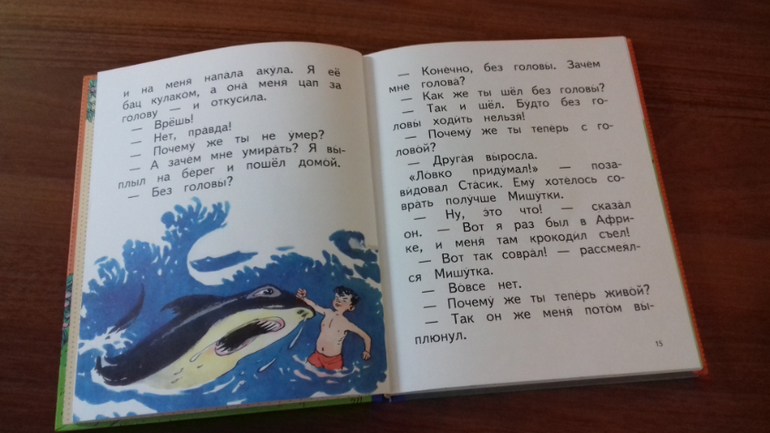 и на меня напала аку́ла. Я её
бац кулако́м, а она́ меня́ цап за
го́лову — и откуси́ла.
— Врёшь!
— Нет, пра́вда!
— Почему́ же ты не у́мер?
— А заче́м мне умира́ть? Я вы́-
плыл на бе́рег и пошёл домо́й.
— Без головы́?
— Коне́чно, без головы́. Заче́м
мне голова́?
— Как же ты шёл без головы́?
— Так и шёл. Бу́дто без го-
ловы́ ходи́ть нельзя́!
— Почему́ же ты тепе́рь с го-
лово́й?
— Друга́я вы́росла.
«Ло́вко приду́мал!» — поза-
ви́довал Ста́сик. Ему́ хоте́лось со-
вра́ть полу́чше Мишу́тки.
— Ну, э́то что! — сказа́л
он. — Вот я раз был в А́фри-
ке, и меня́ там крокоди́л съел!
— Вот так совра́л! — рассмея́л-
ся Мишу́тка.
— Во́все нет.
— Почему́ же ты тепе́рь живо́й?
— Так он же меня́ пото́м вы́-
плюнул.
15